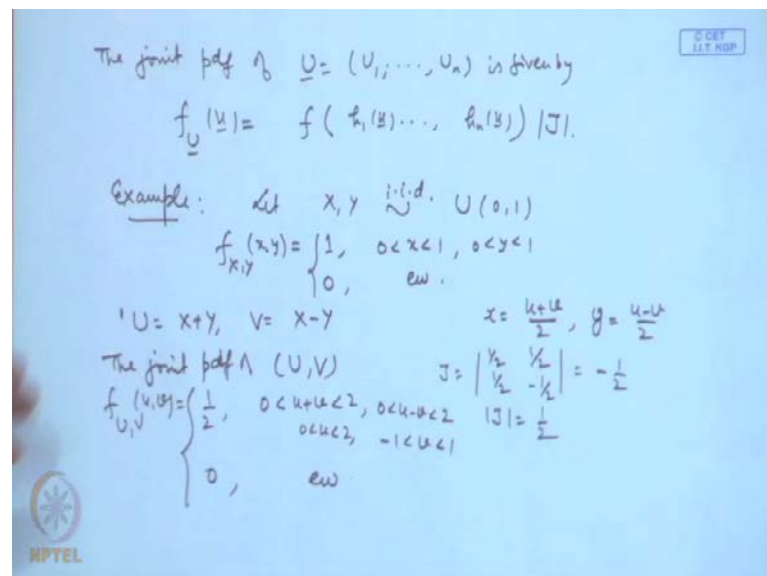 © CET
I.I.T. KGP
The joint pdf of U = (U1, ..., Un) is given by
f_U (u) = f ( h1(u) ..., hn(u) ) |J|.
Example : Let X, Y i.i.d. ~ U(0,1)
f_X,Y (x,y) = { 1, 0<x<1, 0<y<1
0, ew.
U = X+Y, V = X-Y x = (u+v)/2, y = (u-v)/2
The joint pdf of (U,V) J = | 1/2 1/2 ; 1/2 -1/2 | = -1/2
f_U,V (u,v) = { 1/2, 0<u+v<2, 0<u-v<2 |J| = 1/2
0<u<2, -1<v<1
0, ew
NPTEL